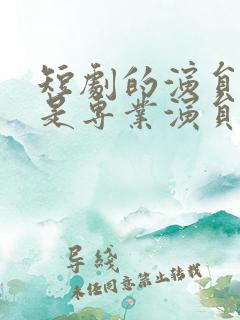 短劇的演員
是專業演員
导线
未经同意禁止转载